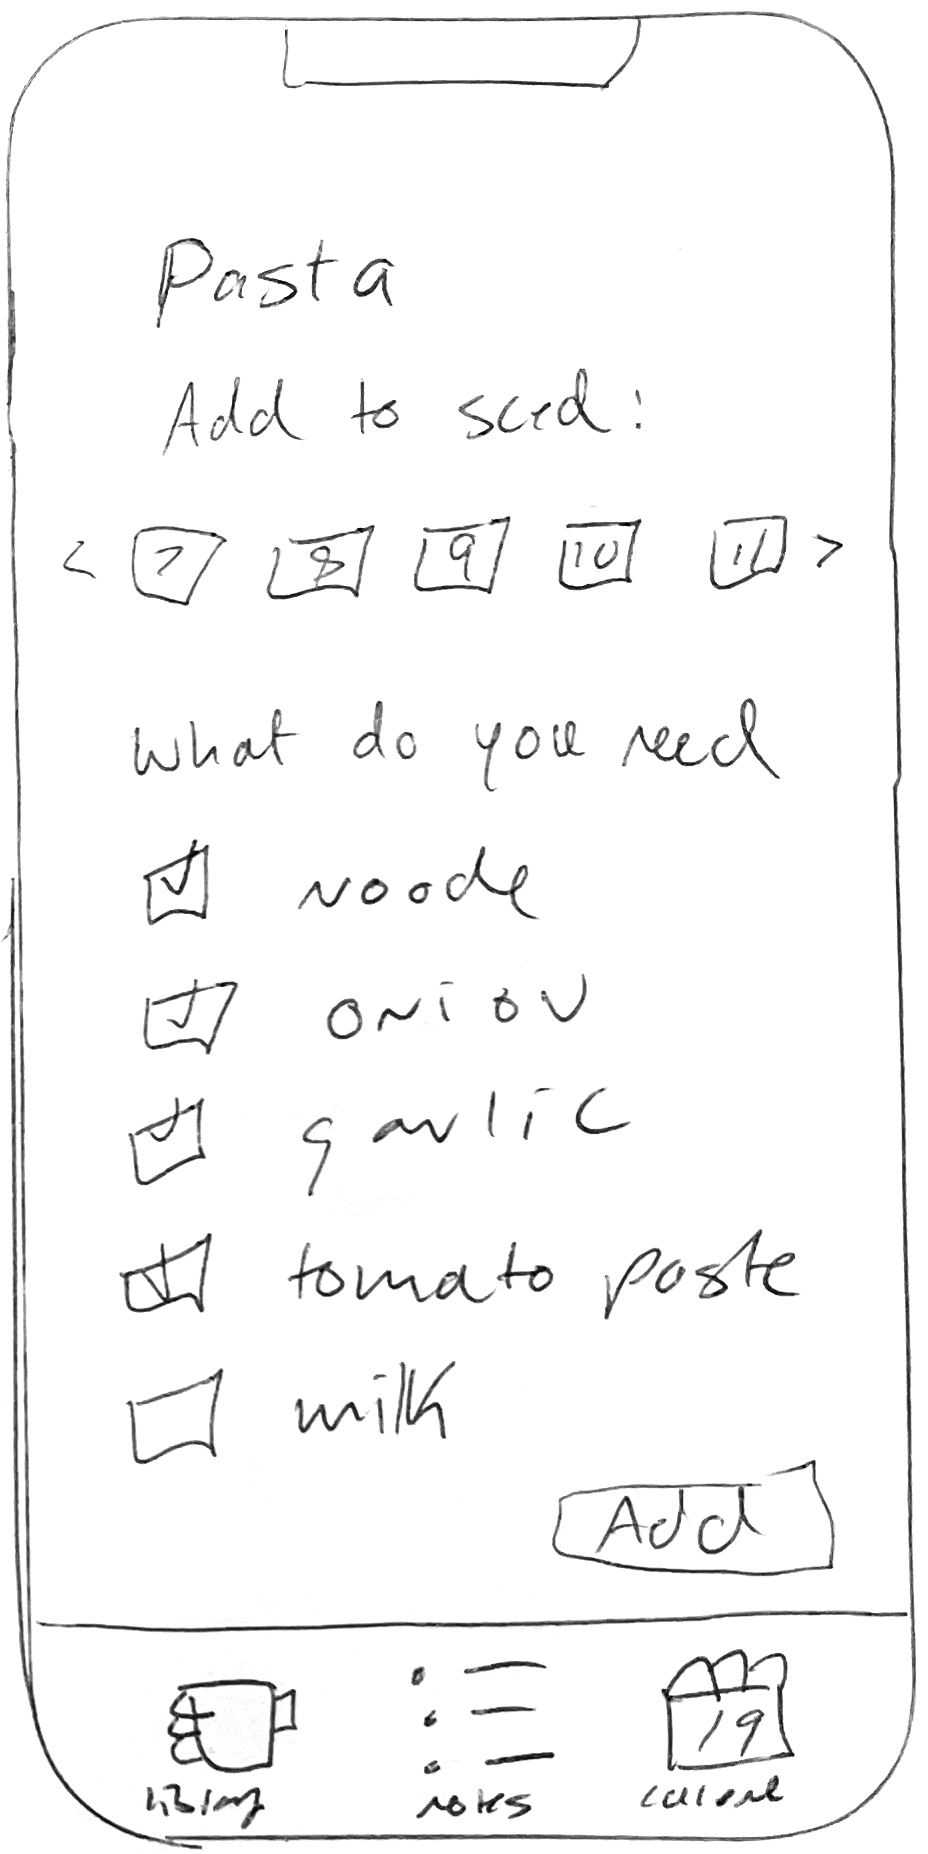 Pasta
Add to sced:
< 7 8 9 10 11 >
What do you need
noode
onion
garlic
tomato paste
milk
Add
19
notes